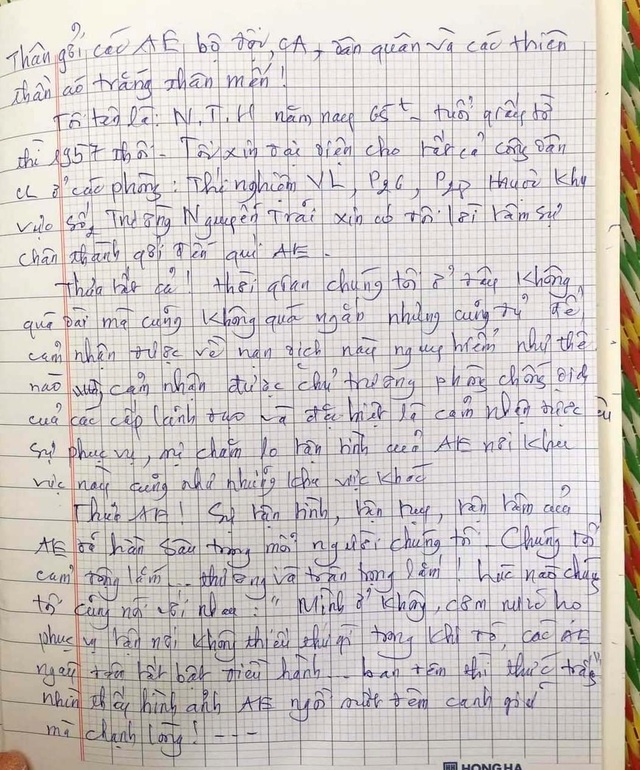 Thân gởi các AE bộ đội, CA, dân quân và các thiên
thần áo trắng thân mến!
Tôi tên là: N.T.H năm nay 65t - tuổi giấy tờ
thì 1957 thôi - Tôi xin đại diện cho tất cả công dân
CL ở các phòng: Thí nghiệm VL, P26, P27 thuộc khu
vực số 2 Trường Nguyễn Trãi xin có đôi lời tâm sự
chân thành gởi đến quí AE.
Thưa tất cả! thời gian chúng tôi ở đây không
quá dài mà cũng không quá ngắn nhưng cũng đủ để
cảm nhận được về nạn dịch này nguy hiểm như thế
nào cảm nhận được chủ trương phòng chống dịch
của các cấp lãnh đạo và đặc biệt là cảm nhận được
sự phục vụ, chăm lo tận tình của AE nơi khu
vực này cũng như những khu vực khác
Thưa AE! Sự tận tình, tận tụy, tận tâm của
AE đã hằn sâu trong mỗi người chúng tôi - Chúng tôi
cảm động lắm... thương và trân trọng lắm! Lúc nào chúng
tôi cũng nói với nhau: " Mình ở không, cơm nước họ
phục vụ tận nơi không thiếu thứ gì trong khi đó, các AE
ngày đêm tất bật điều hành... ban đêm thì thức trắng"
nhìn thấy hình ảnh AE ngồi suốt đêm canh giữ
mà chạnh lòng! ----
HONG HA